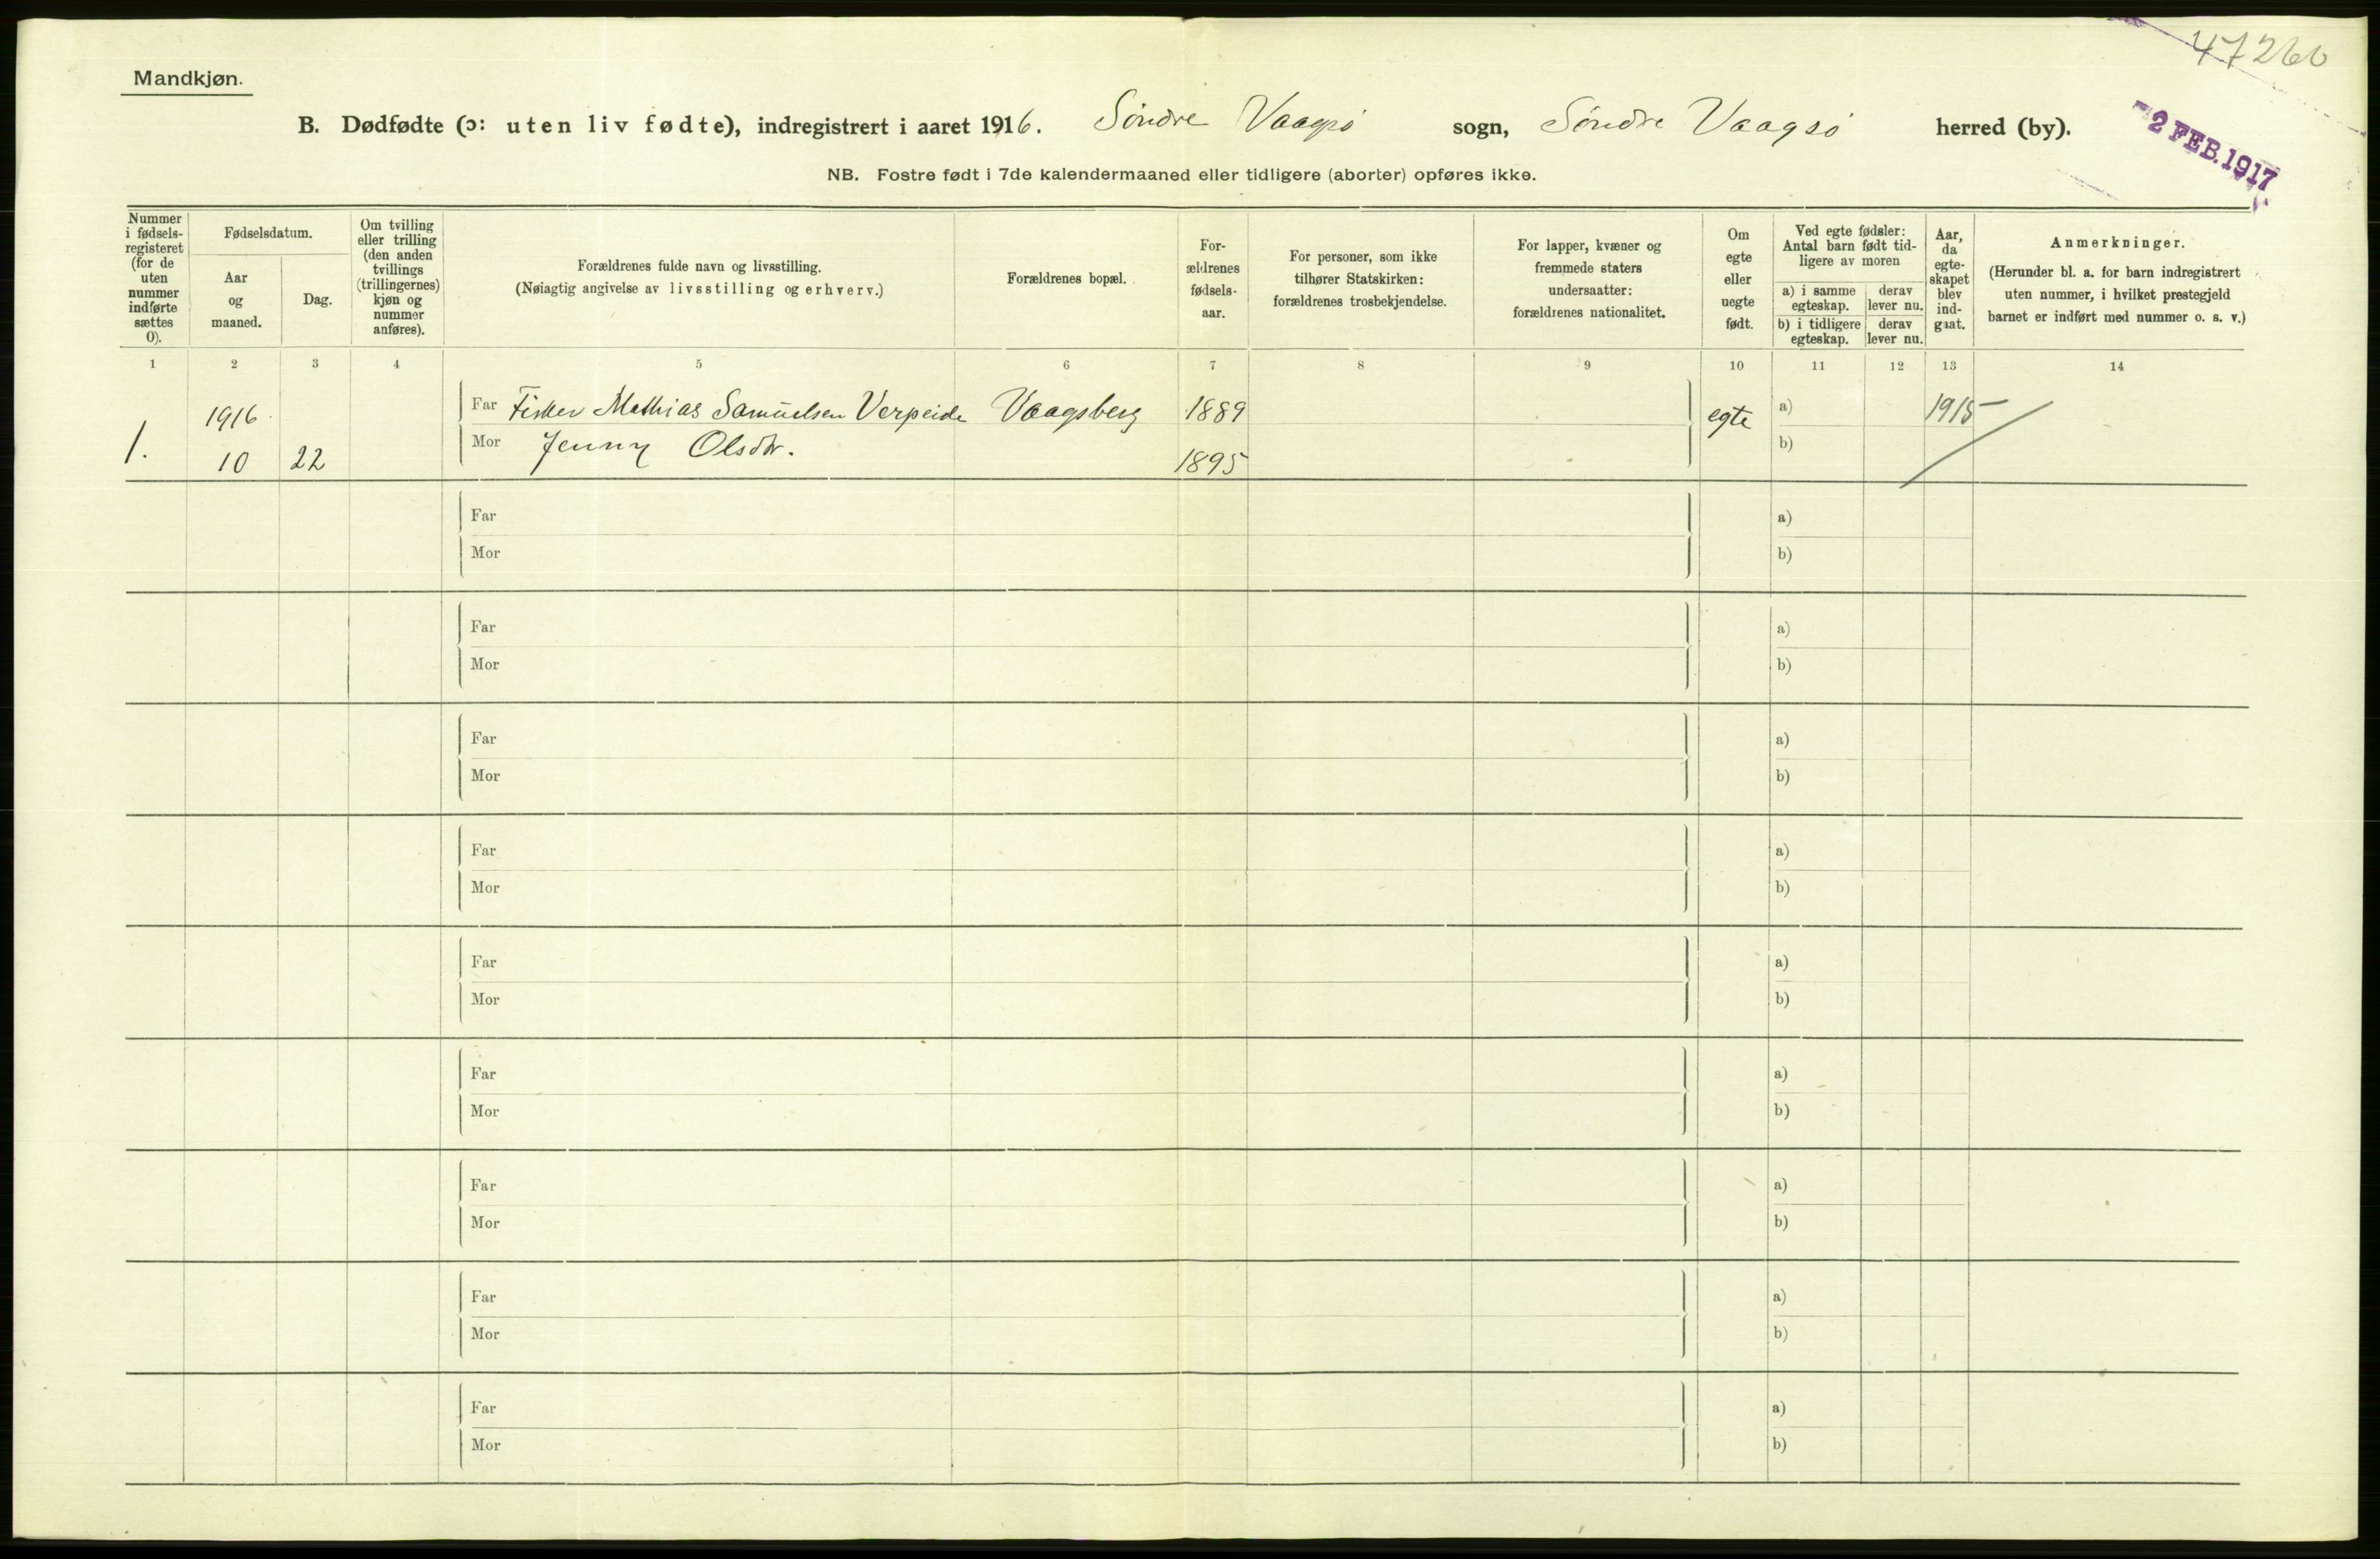 47260
Mandkjøn.
B. Dødfødte (ɔ: uten liv fødte), indregistrert i aaret 1916. Søndre Vaagsö sogn, Søndre Vaagsö herred (by).
2 FEB. 1917
NB. Fostre født i 7de kalendermaaned eller tidligere (aborter) opføres ikke.
Nummer
i fødsels-
registeret
(for de
uten
nummer
indførte
sættes
0).
Fødselsdatum.
Aar
og
maaned.
Dag.
Om tvilling
eller trilling
(den anden
tvillings
(trillingernes)
kjøn og
nummer
anføres).
Forældrenes fulde navn og livsstilling.
(Nøiagtig angivelse av livsstilling og erhverv.)
Forældrenes bopæl.
For-
ældrenes
fødsels-
aar.
For personer, som ikke
tilhører Statskirken:
forældrenes trosbekjendelse.
For lapper, kvæner og
fremmede staters
undersaatter:
forældrenes nationalitet.
Om
egte
eller
uegte
født.
Ved egte fødsler:
Antal barn født tid-
ligere av moren
a) i samme
egteskap.
derav
lever nu.
b) i tidligere
egteskap.
derav
lever nu.
Aar,
da
egte-
skapet
blev
ind-
gaat.
Anmerkninger.
(Herunder bl. a. for barn indregistrert
uten nummer, i hvilket prestegjeld
barnet er indført med nummer o. s. v.)
1 2 3 4 5 6 7 8 9 10 11 12 13 14
1916 Far Fisker Mathias Samuelsen Verpeide Vaagsberg 1889 egte a) 1915
1. 10 22 Mor Jenny Olsdtr. 1895 b)
Far a)
Mor b)
Far a)
Mor b)
Far a)
Mor b)
Far a)
Mor b)
Far a)
Mor b)
Far a)
Mor b)
Far a)
Mor b)
Far a)
Mor b)
Far a)
Mor b)